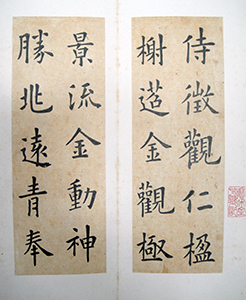 侍徵觀仁楹
榭莛金觀極
景流金動神
勝兆遠青奉